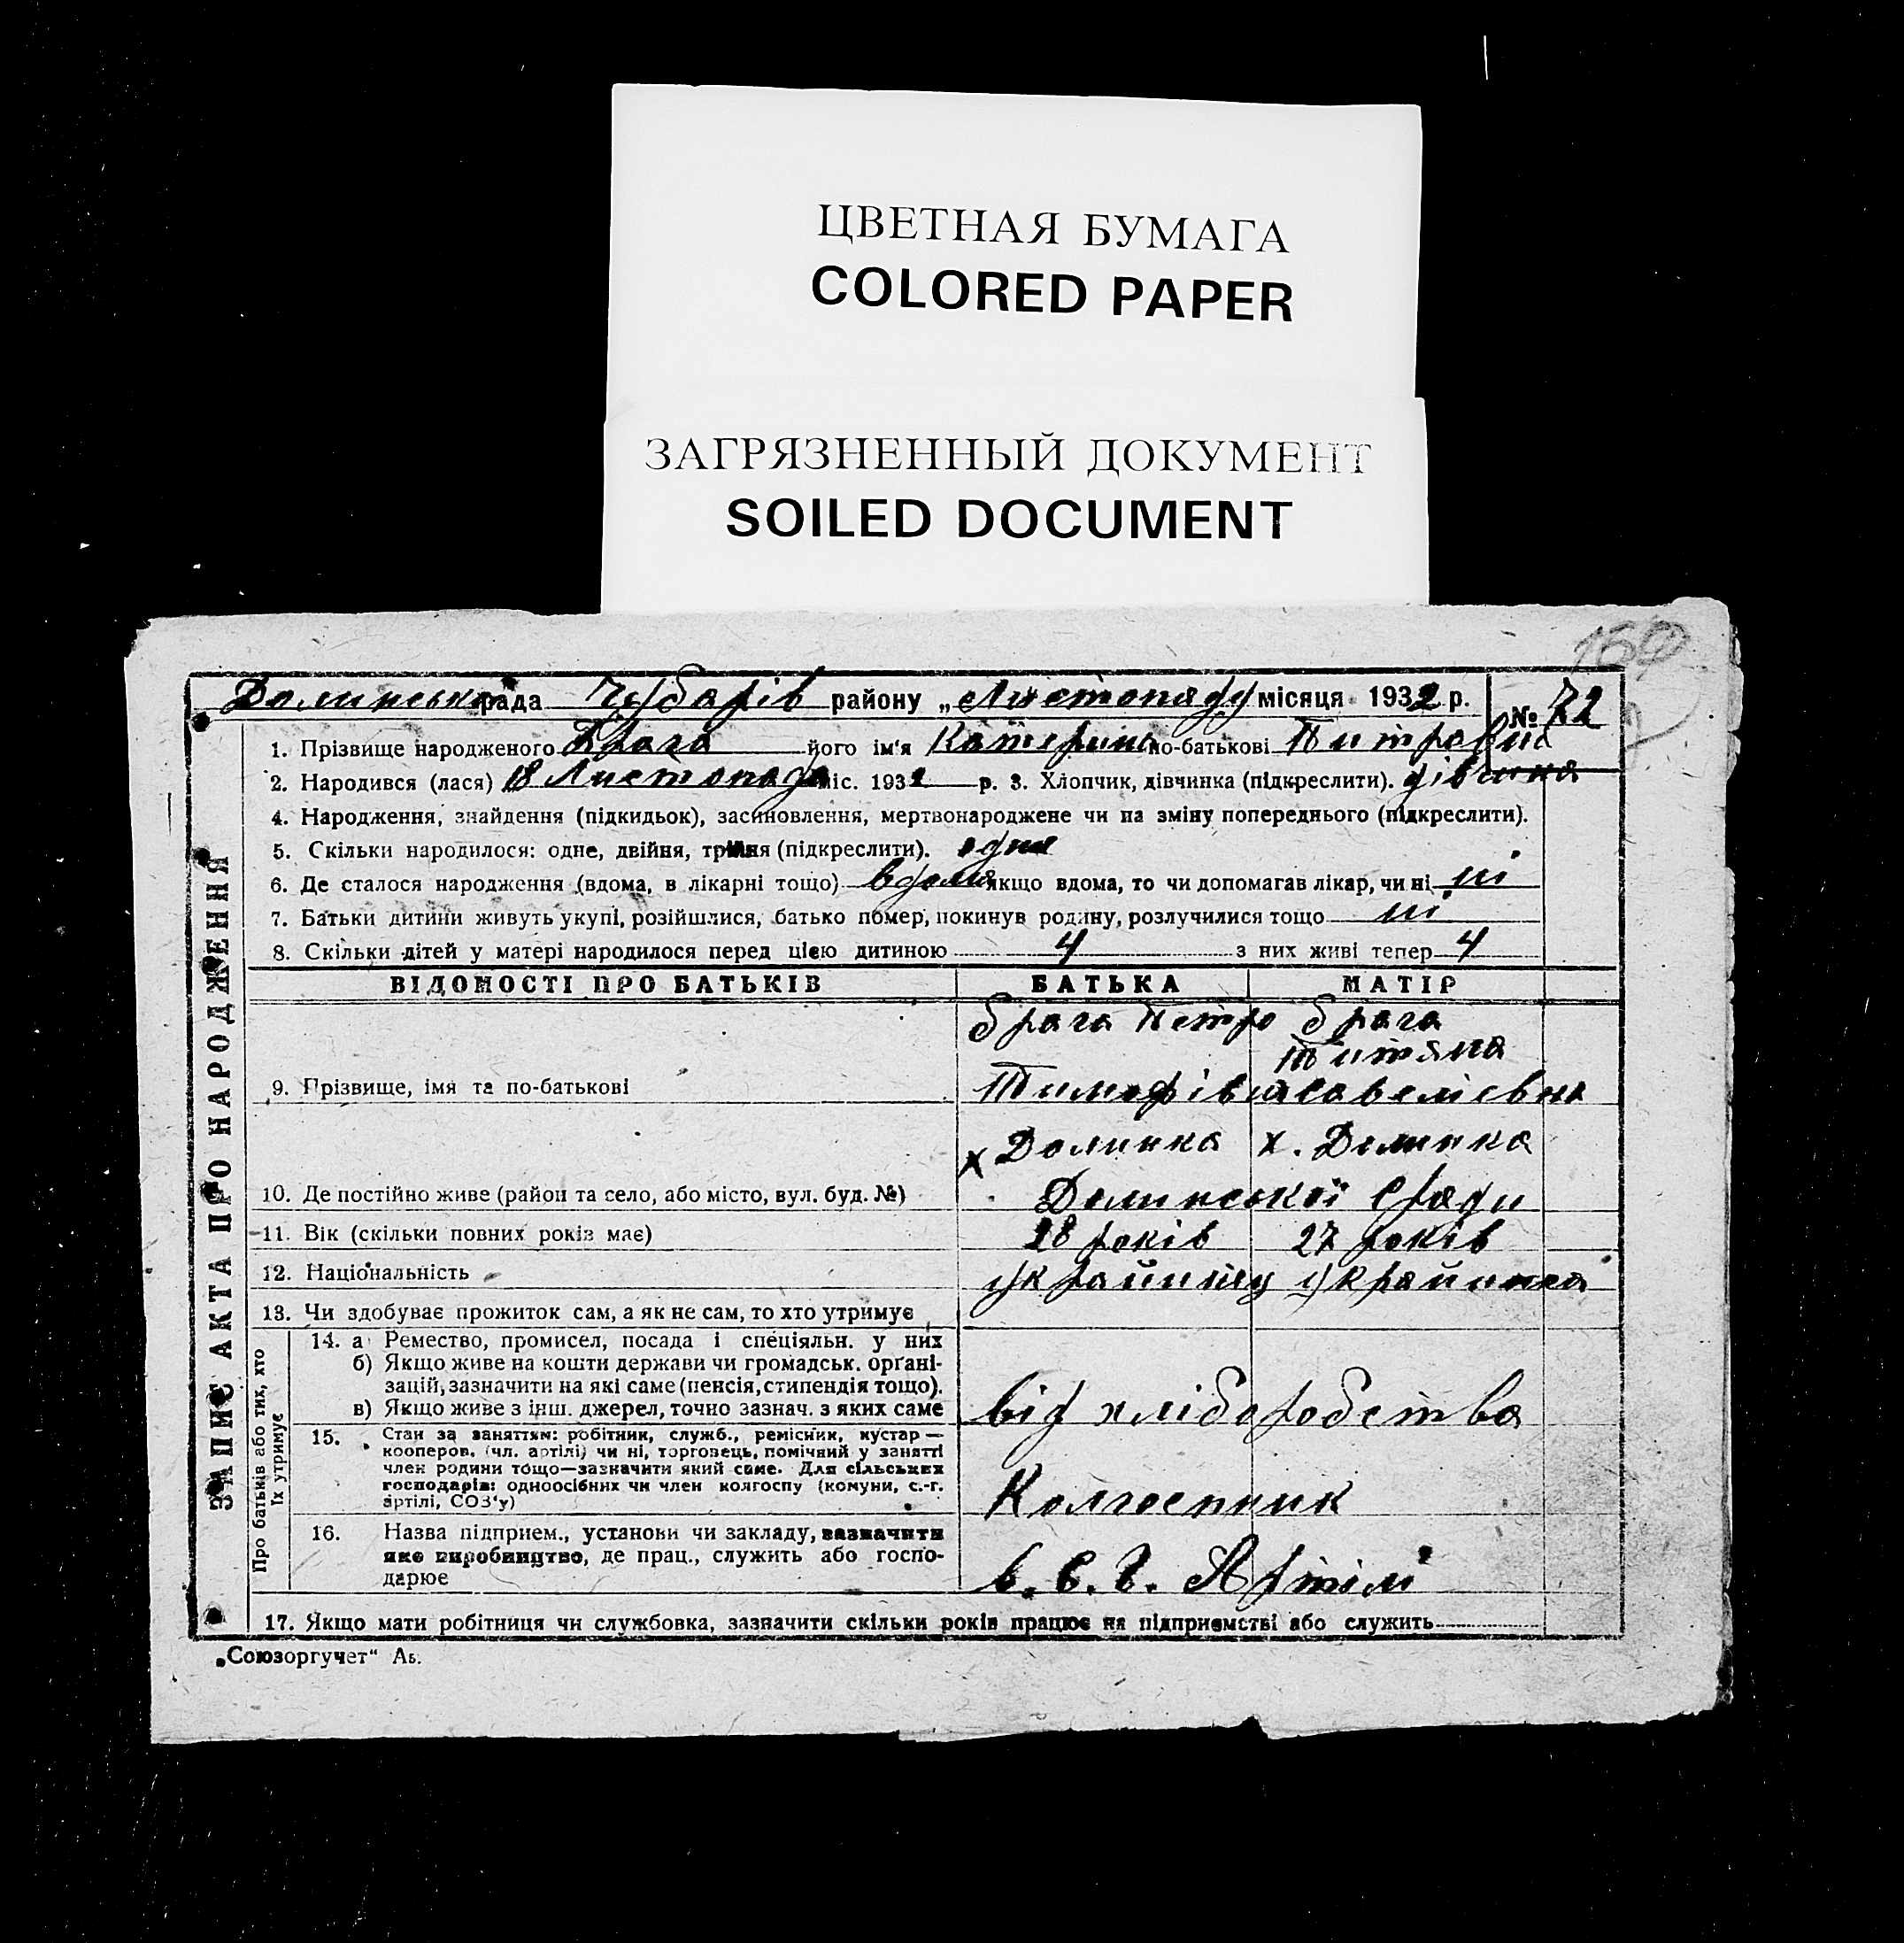 ЦВЕТНАЯ БУМАГА
COLORED PAPER
ЗАГРЯЗНЕННЫЙ ДОКУМЕНТ
SOILED DOCUMENT
160
Долинської рада Чубарів району „Листопяду місяця 1932 р. № 72
1. Прізвище народженого Брага його ім'я Катерина по-батькові Питровна
2. Народився (лася) 18 Листопада міс. 1932 р. 3. Хлопчик, дівчинка (підкреслити). дівчинка
4. Народження, знайдення (підкидьок), засиновлення, мертвонароджене чи на зміну попереднього (підкреслити).
5. Скільки народилося: одне, двійня, трійня (підкреслити). одна
6. Де сталося народження (вдома, в лікарні тощо) вдома якщо вдома, то чи допомагав лікар, чи ні ні
7. Батьки дитини живуть укупі, розійшлися, батько помер, покинув родину, розлучилися тощо ні
8. Скільки дітей у матері народилося перед цією дитиною 4 з них живі тепер 4
ЗАПИС АКТА ПРО НАРОДЖЕННЯ
ВІДОМОСТІ ПРО БАТЬКІВ БАТЬКА МАТІР
Брага Петро Брага
Титяна
9. Прізвище, імя та по-батькові Тимофівич Савелієвна
х Долинка х. Долинка
10. Де постійно живе (район та село, або місто, вул. буд. №) Долинської С/ради
11. Вік (скільки повних років має) 28 років 27 років
12. Національність украйинец украйинка
13. Чи здобуває прожиток сам, а як не сам, то хто утримує
Про батьків або тих, хто
їх утримує
14. а Ремество, промисел, посада і спеціяльн. у них
б) Якщо живе на кошти держави чи громадськ. орґані-
зацій, зазначити на які саме (пенсія, стипендія тощо).
в) Якщо живе з інш. джерел, точно зазнач. з яких саме від хліборобства
15. Стан за заняттям: робітник, служб., ремісник, кустар—
кооперов. (чл. артілі) чи ні, торговець, помічний у занятті
член родини тощо—зазначити який саме. Для сільських
господарів: одноосібних чи член колгоспу (комуни, с.-г.
артілі, СОЗ'у) Колгоспник
16. Назва підприєм., установи чи закладу, зазначити
яке виробництво, де прац., служить або госпо-
дарює в. С. Г. Артілі
17. Якщо мати робітниця чи службовка, зазначити скільки років працює на підприємстві або служить
„Союзоргучет“ Аь.